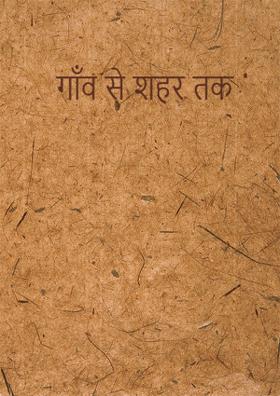 गाँव से शहर तक